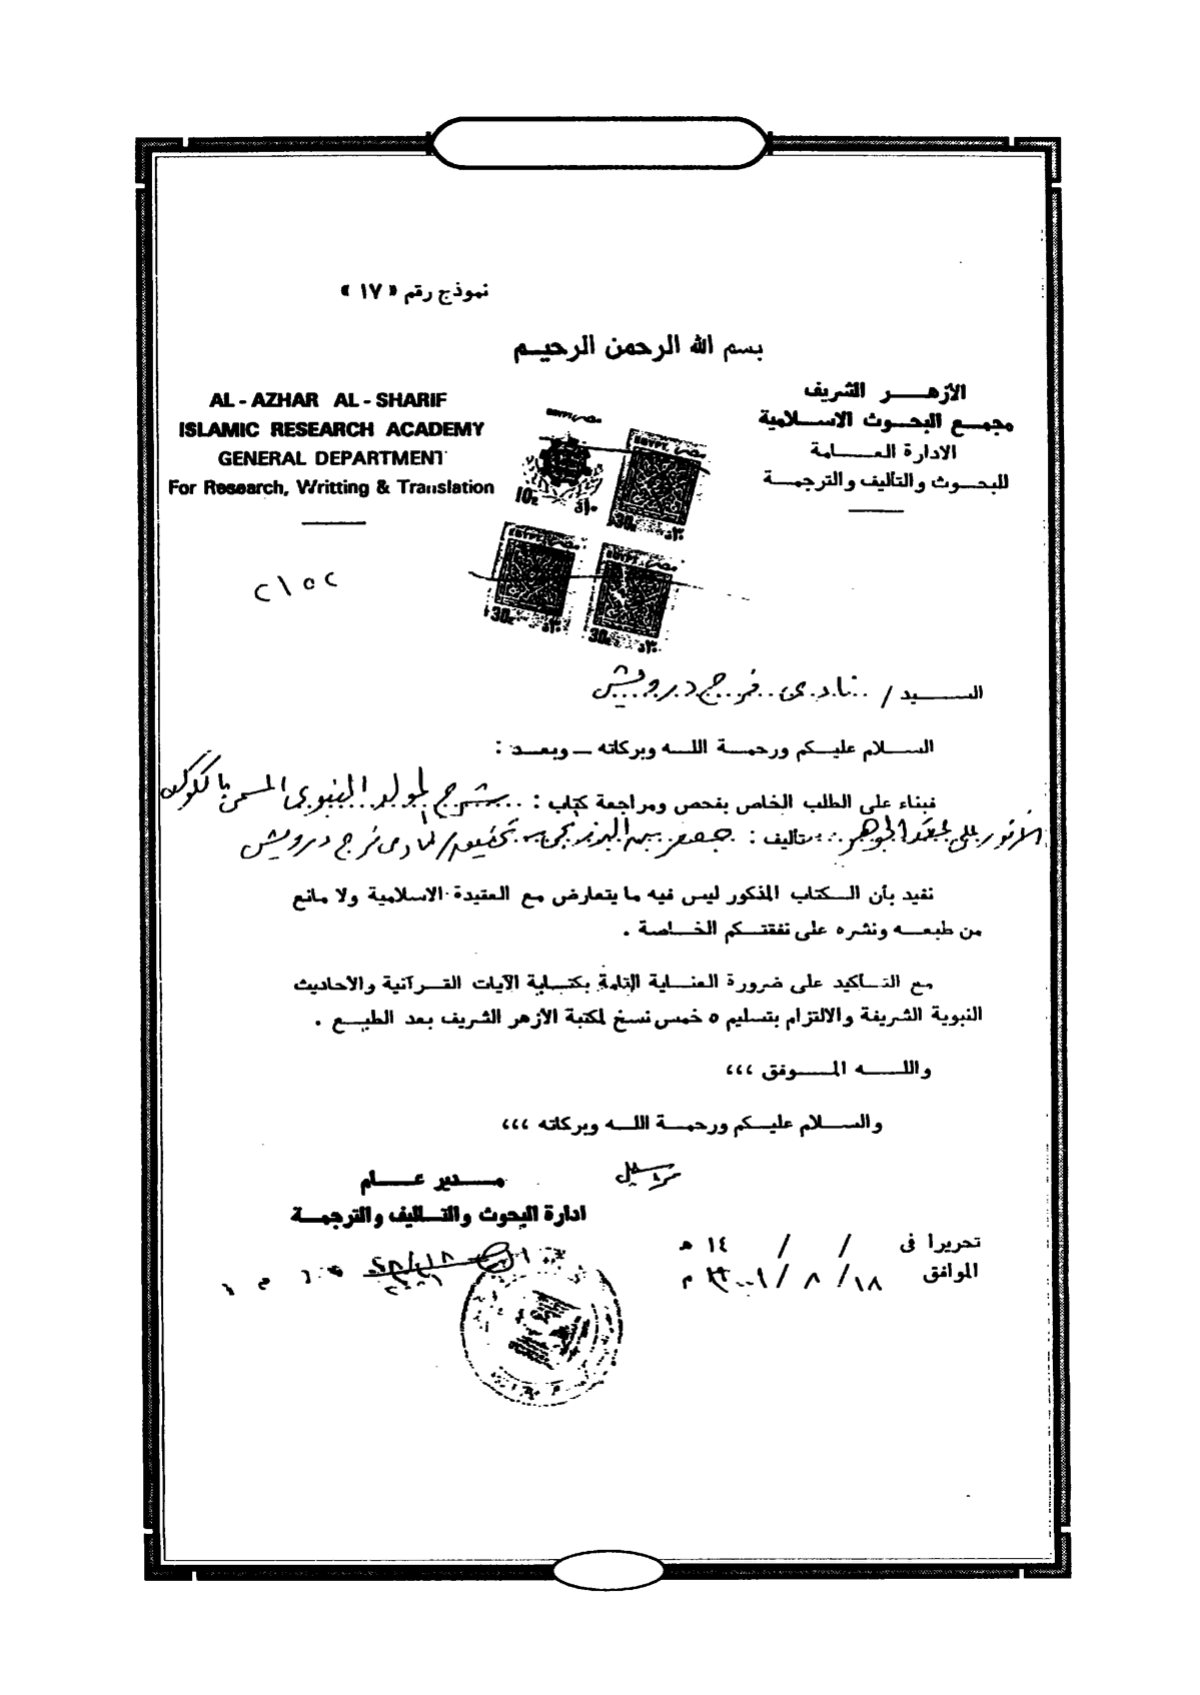 نموذج رقم « ١٧ »
بسم الله الرحمن الرحيم
الأزهر الشريف
مجمع البحوث الاسلامية
الادارة العامة
للبحوث والتأليف والترجمة
AL - AZHAR AL - SHARIF
ISLAMIC RESEARCH ACADEMY
GENERAL DEPARTMENT
For Research, Writting & Translation
EGYPT مصر
10
EGYPT مصر
30
EGYPT مصر
30
EGYPT مصر
30
السيد / نادى فرج درويش
السلام عليكم ورحمة الله وبركاته ــ وبعد :
فبناء على الطلب الخاص بفحص ومراجعة كتاب : شرح المولد النبوى المسمى بالكوكب
الأنور على عقد الجوهر تأليف : جعفر بن البرزنجى تحقيق / نادى فرج درويش
نفيد بأن الكتاب المذكور ليس فيه ما يتعارض مع العقيدة الاسلامية ولا مانع
من طبعه ونشره على نفقتكم الخاصة .
مع التأكيد على ضرورة العناية التامة بكتابة الآيات القرآنية والأحاديث
النبوية الشريفة والالتزام بتسليم ٥ خمس نسخ لمكتبة الأزهر الشريف بعد الطبع .
والله الموفق ،،،
والسلام عليكم ورحمة الله وبركاته ،،،
مدير عام
ادارة البحوث والتأليف والترجمة
تحريرا فى / / ١٤ هـ
الموافق ١٨ / ٨ / ٢٠٠١ م